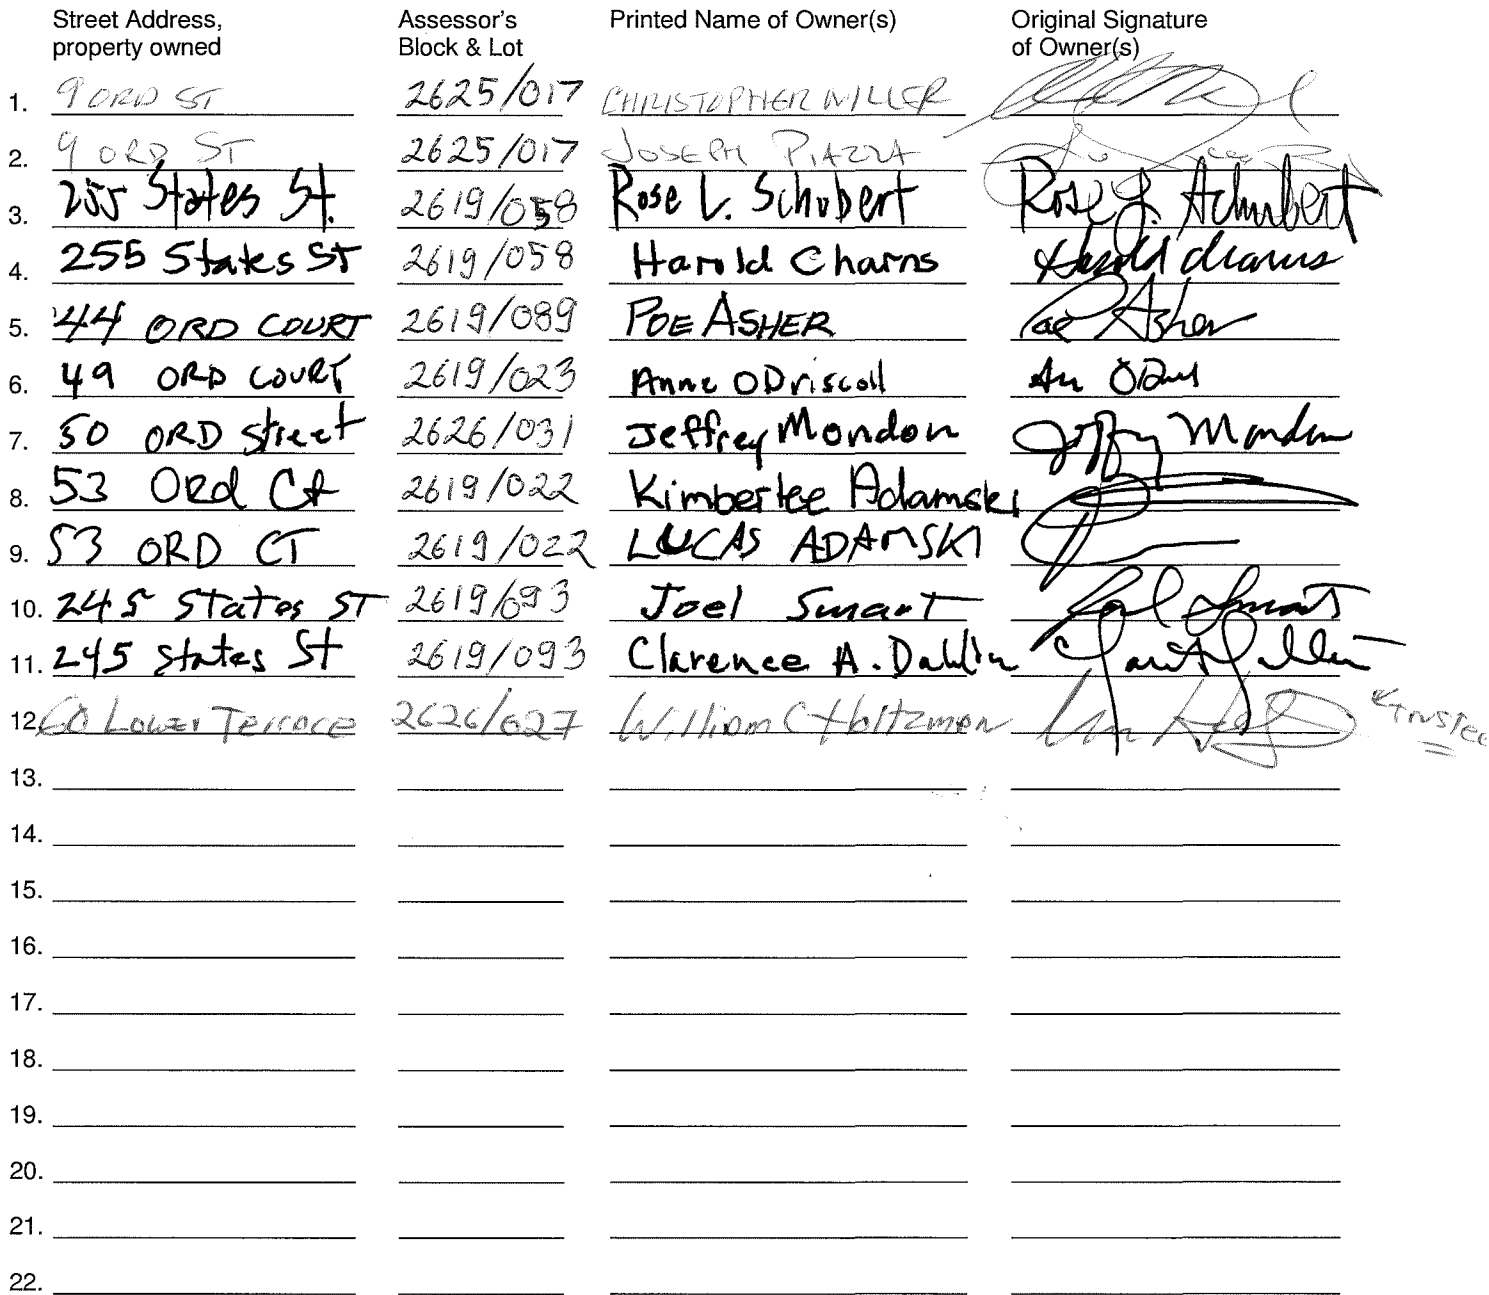 Street Address, Assessor's Printed Name of Owner(s) Original Signature
property owned Block & Lot of Owner(s)
1. 9 ORD ST 2625/017 CHRISTOPHER MILLER
2. 9 ORD ST 2625/017 JOSEPH PIAZZA
3. 255 States St. 2619/058 Rose L. Schubert Rose L. Schubert
4. 255 States ST 2619/058 Harold Charns Harold Charns
5. 44 ORD COURT 2619/089 POE ASHER Poe Asher
6. 49 ORD COURT 2619/023 Anne ODriscoll
7. 50 ORD Street 2626/031 Jeffrey Mondon Jeffrey Mondon
8. 53 Ord Ct 2619/022 Kimberlee Adamski
9. 53 ORD CT 2619/022 LUCAS ADAMSKI
10. 245 States ST 2619/093 Joel Smart Joel Smart
11. 245 States St 2619/093 Clarence A. Dahlin
12. 60 Lower Terrace 2626/027 William C Holtzman Trustee
13.
14.
15.
16.
17.
18.
19.
20.
21.
22.